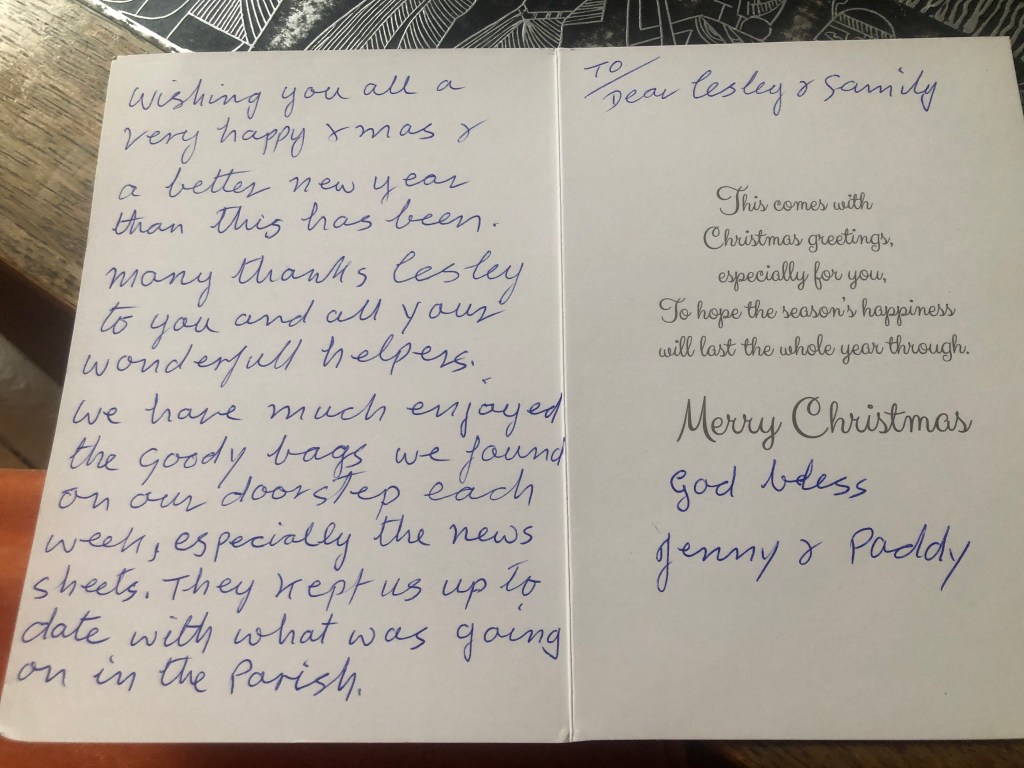 Wishing you all a
very happy xmas &
a better new year
than this has been.
Many thanks Lesley
to you and all your
wonderfull helpers.
We have much enjoyed
the goody bags we found
on our doorstep each
week, especially the news
sheets. They kept us up to
date with what was going
on in the Parish.
TO/
Dear Lesley & Family
This comes with
Christmas greetings,
especially for you,
To hope the season's happiness
will last the whole year through.
Merry Christmas
God bless
Jenny & Paddy